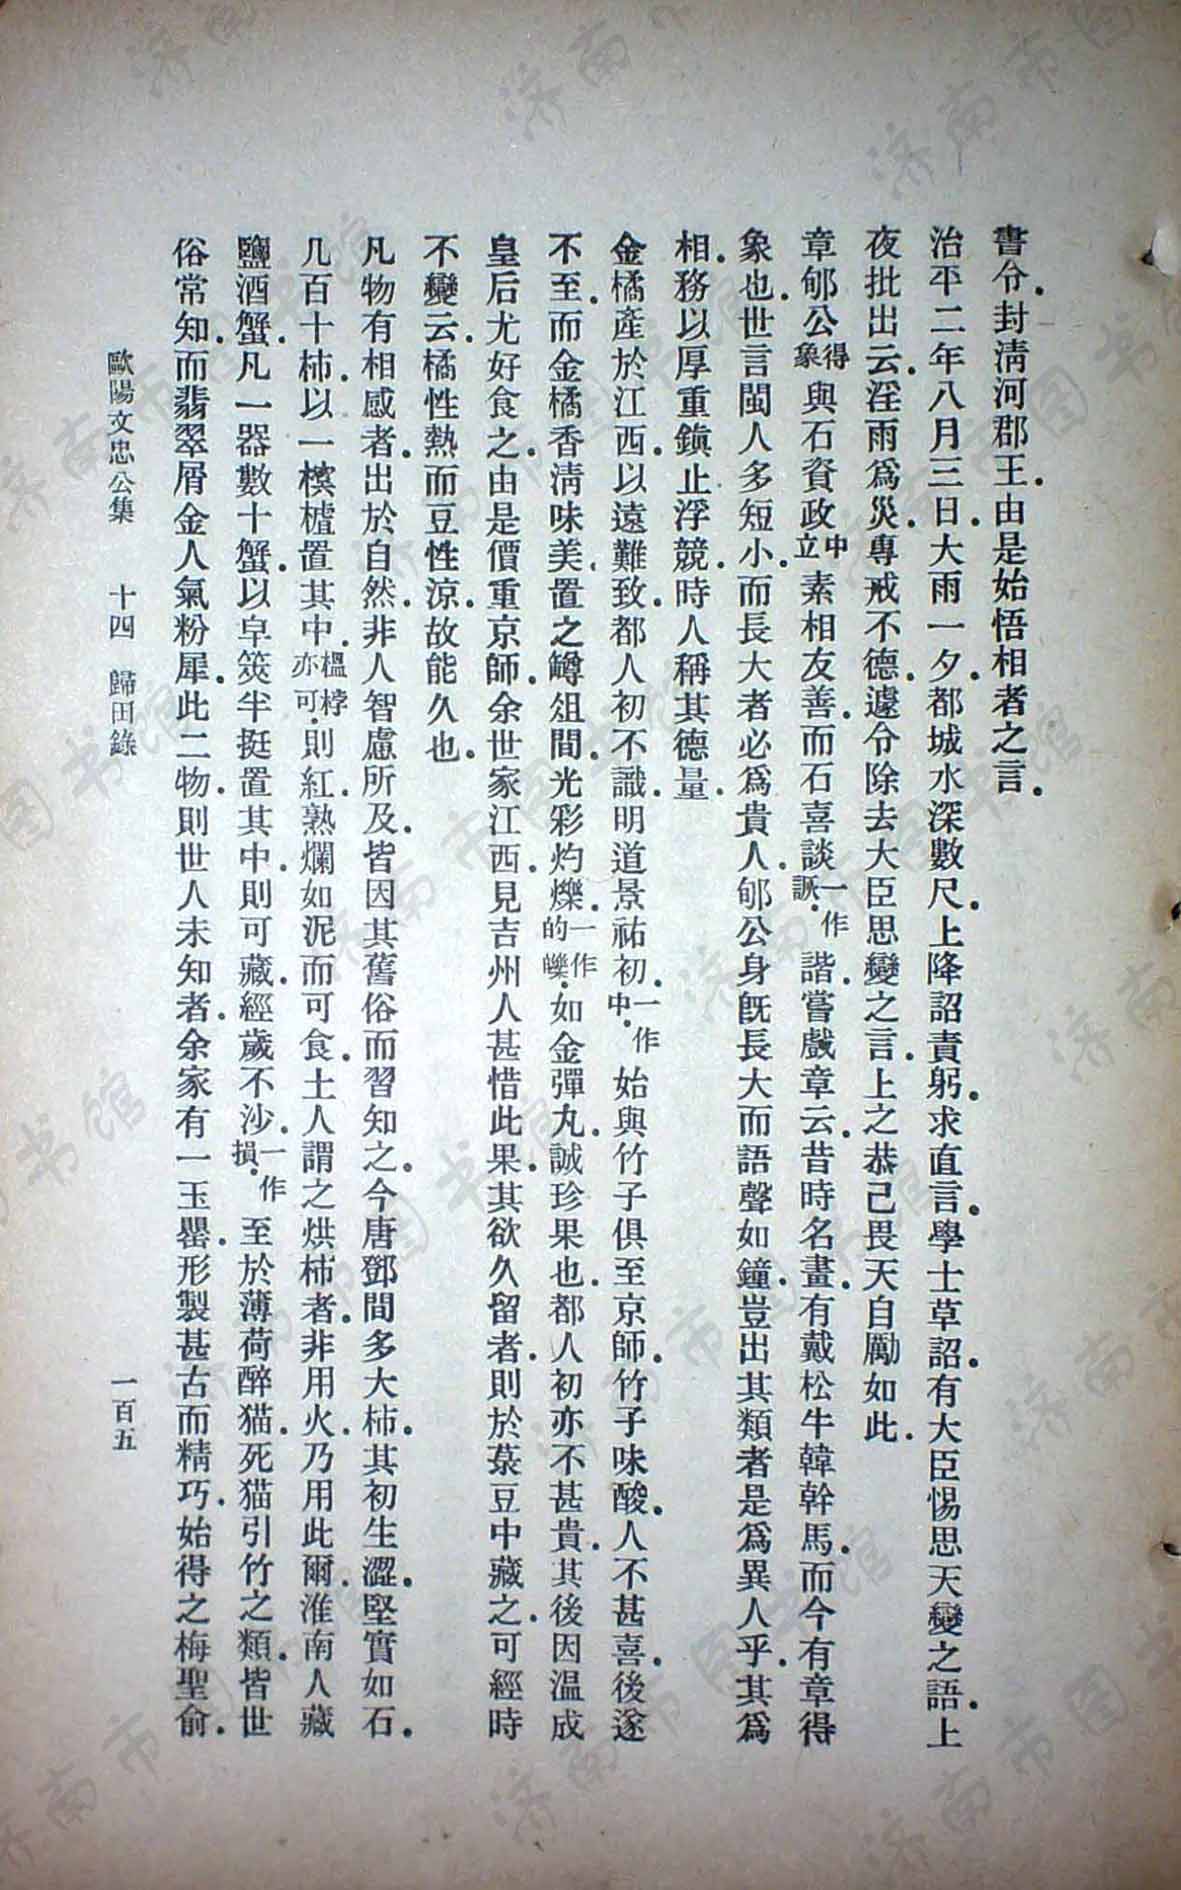 書令封淸河郡王由是始悟相者之言
治平二年八月三日大雨一夕都城水深數尺上降詔責躬求直言學士草詔有大臣惕思天變之語上
夜批出云淫雨爲災專戒不德遽令除去大臣思變之言上之恭己畏天自勵如此
章郇公得象與石資政中立素相友善而石喜談一作詼諧嘗戲章云昔時名畫有戴松牛韓幹馬而今有章得
象也世言閩人多短小而長大者必爲貴人郇公身旣長大而語聲如鐘豈出其類者是爲異人乎其爲
相務以厚重鎭止浮競時人稱其德量
金橘產於江西以遠難致都人初不識明道景祐初一作中始與竹子俱至京師竹子味酸人不甚喜後遂
不至而金橘香淸味美置之罇俎間光彩灼爍一作的皪如金彈丸誠珍果也都人初亦不甚貴其後因温成
皇后尤好食之由是價重京師余世家江西見吉州人甚惜此果其欲久留者則於菉豆中藏之可經時
不變云橘性熱而豆性涼故能久也
凡物有相感者出於自然非人智慮所及皆因其舊俗而習知之今唐鄧間多大柿其初生澀堅實如石
凡百十柿以一榠樝置其中榲桲亦可則紅熟爛如泥而可食土人謂之烘柿者非用火乃用此爾淮南人藏
鹽酒蟹凡一器數十蟹以皁筴半挺置其中則可藏經歲不沙一作損至於薄荷醉猫死猫引竹之類皆世
俗常知而翡翠屑金人氣粉犀此二物則世人未知者余家有一玉罌形製甚古而精巧始得之梅聖俞
歐陽文忠公集 十四 歸田錄 一百五